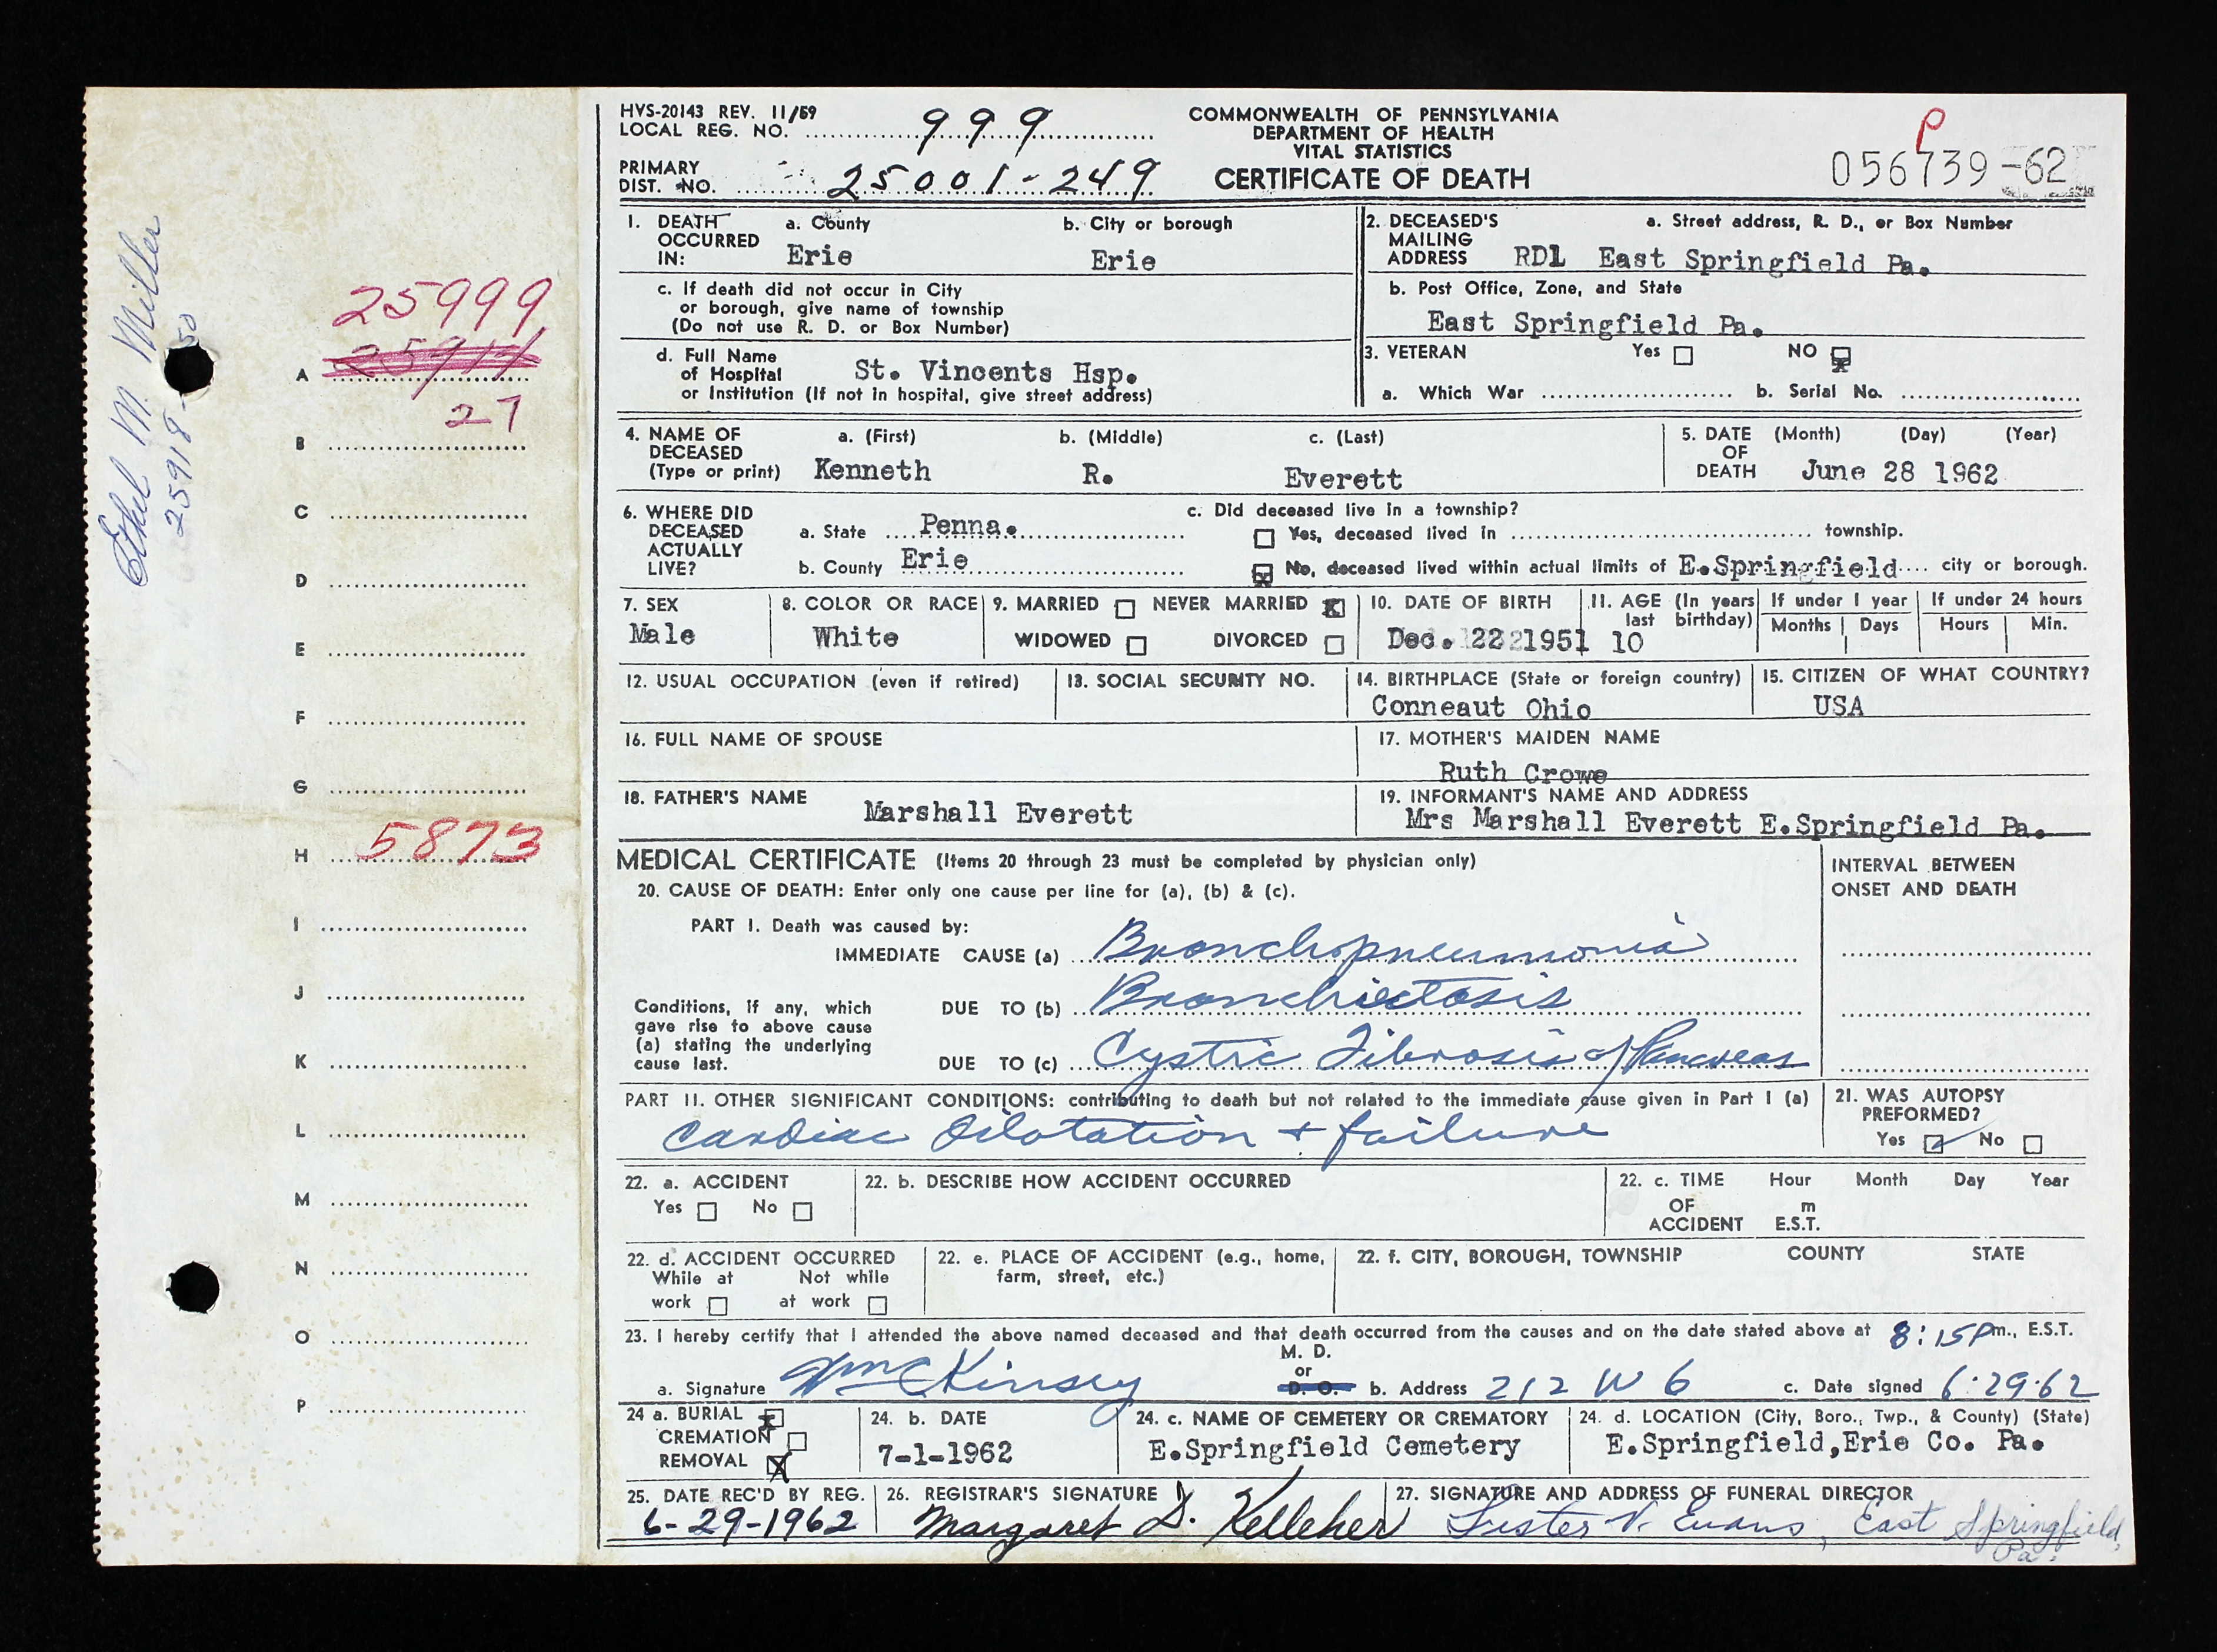 HVS-20143 REV. 11/59
LOCAL REG. NO. 999
PRIMARY DIST. NO. 25001-249
COMMONWEALTH OF PENNSYLVANIA
DEPARTMENT OF HEALTH
VITAL STATISTICS
CERTIFICATE OF DEATH
P
056739-62
1. DEATH OCCURRED IN:
a. County
Erie
b. City or borough
Erie
c. If death did not occur in City
or borough, give name of township
(Do not use R. D. or Box Number)
d. Full Name
of Hospital St. Vincents Hsp.
or Institution (If not in hospital, give street address)
2. DECEASED'S MAILING ADDRESS
a. Street address, R. D., or Box Number
RD1 East Springfield Pa.
b. Post Office, Zone, and State
East Springfield Pa.
3. VETERAN Yes NO
a. Which War b. Serial No.
4. NAME OF DECEASED (Type or print)
a. (First) b. (Middle) c. (Last)
Kenneth R. Everett
5. DATE OF DEATH (Month) (Day) (Year)
June 28 1962
6. WHERE DID DECEASED ACTUALLY LIVE?
a. State Penna.
b. County Erie
c. Did deceased live in a township?
Yes, deceased lived in township.
No, deceased lived within actual limits of E.Springfield city or borough.
7. SEX
Male
8. COLOR OR RACE
White
9. MARRIED NEVER MARRIED X
WIDOWED DIVORCED
10. DATE OF BIRTH
Dec. 22 1951
11. AGE (In years last birthday)
10
If under 1 year
Months Days
If under 24 hours
Hours Min.
12. USUAL OCCUPATION (even if retired)
13. SOCIAL SECURITY NO.
14. BIRTHPLACE (State or foreign country)
Conneaut Ohio
15. CITIZEN OF WHAT COUNTRY?
USA
16. FULL NAME OF SPOUSE
17. MOTHER'S MAIDEN NAME
Ruth Crowe
18. FATHER'S NAME
Marshall Everett
19. INFORMANT'S NAME AND ADDRESS
Mrs Marshall Everett E.Springfield Pa.
MEDICAL CERTIFICATE (Items 20 through 23 must be completed by physician only)
20. CAUSE OF DEATH: Enter only one cause per line for (a), (b) & (c).
INTERVAL BETWEEN
ONSET AND DEATH
PART I. Death was caused by:
IMMEDIATE CAUSE (a) Bronchopneumonia
Conditions, if any, which
gave rise to above cause
(a) stating the underlying
cause last.
DUE TO (b) Bronchiectasis
DUE TO (c) Cystic Fibrosis of Pancreas
PART II. OTHER SIGNIFICANT CONDITIONS: contributing to death but not related to the immediate cause given in Part I (a)
Cardiac dilatation + failure
21. WAS AUTOPSY
PREFORMED?
Yes No
22. a. ACCIDENT
Yes No
22. b. DESCRIBE HOW ACCIDENT OCCURRED
22. c. TIME OF ACCIDENT Hour Month Day Year
m
E.S.T.
22. d. ACCIDENT OCCURRED
While at work Not while at work
22. e. PLACE OF ACCIDENT (e.g., home,
farm, street, etc.)
22. f. CITY, BOROUGH, TOWNSHIP COUNTY STATE
23. I hereby certify that I attended the above named deceased and that death occurred from the causes and on the date stated above at 8:15 P m., E.S.T.
a. Signature Wm C Kinsey
M. D.
or
D. O.
b. Address 212 W 6
c. Date signed 6-29-62
24 a. BURIAL X
CREMATION
REMOVAL X
24. b. DATE
7-1-1962
24. c. NAME OF CEMETERY OR CREMATORY
E.Springfield Cemetery
24. d. LOCATION (City, Boro., Twp., & County) (State)
E.Springfield,Erie Co. Pa.
25. DATE REC'D BY REG.
6-29-1962
26. REGISTRAR'S SIGNATURE
Margaret D. Kelleher
27. SIGNATURE AND ADDRESS OF FUNERAL DIRECTOR
Lester V. Evans, East Springfield, Pa.
Ethel M. Miller
25918-50
25999
A
27
B
C
D
E
F
G
H 5873
I
J
K
L
M
N
O
P